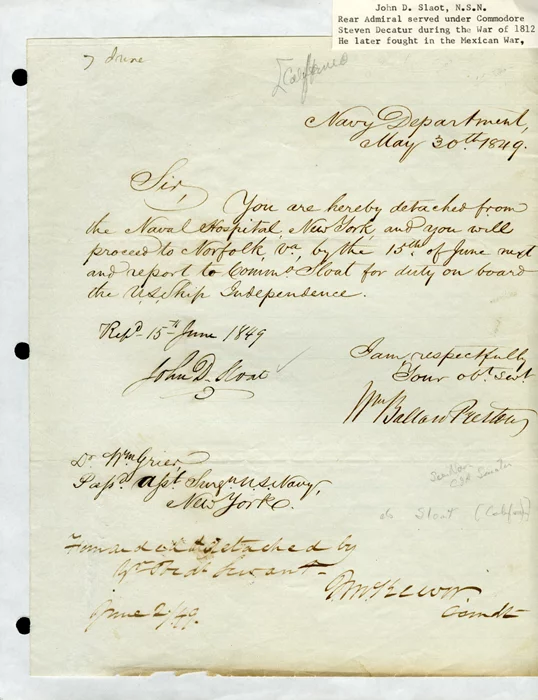 John D. Slaot, N.S.N.
Rear Admiral served under Commodore
Steven Decatur during the War of 1812
He later fought in the Mexican War,
7 June
Navy Department,
May 30th 1849.
Sir,
You are hereby detached from
the Naval Hospital, New York, and you will
proceed to Norfolk, Va, by the 15th of June next
and report to Commo Sloat for duty on board
the U.S. Ship Independence.
Repd 15th June 1849
John D. Sloat
I am, respectfully
Your obt. Sevt
Wm Ballard Preston
Dr Wm Grier,
Passd Asst Surgn U.S. Navy,
New York.
Sloat
Forwarded & detached by
Yr Obdt Servant
Comdt
June 2/49.